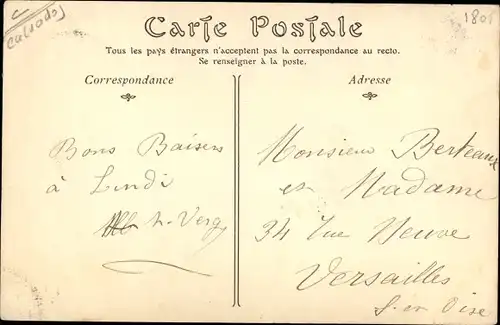 Carte Postale
Tous les pays étrangers n'acceptent pas la correspondance au recto.
Se renseigner à la poste.
Correspondance
Adresse
Bons Baisers
à Lundi
Monsieur Berteaux
et Madame
34 Rue Neuve
Versailles
S-et-Oise